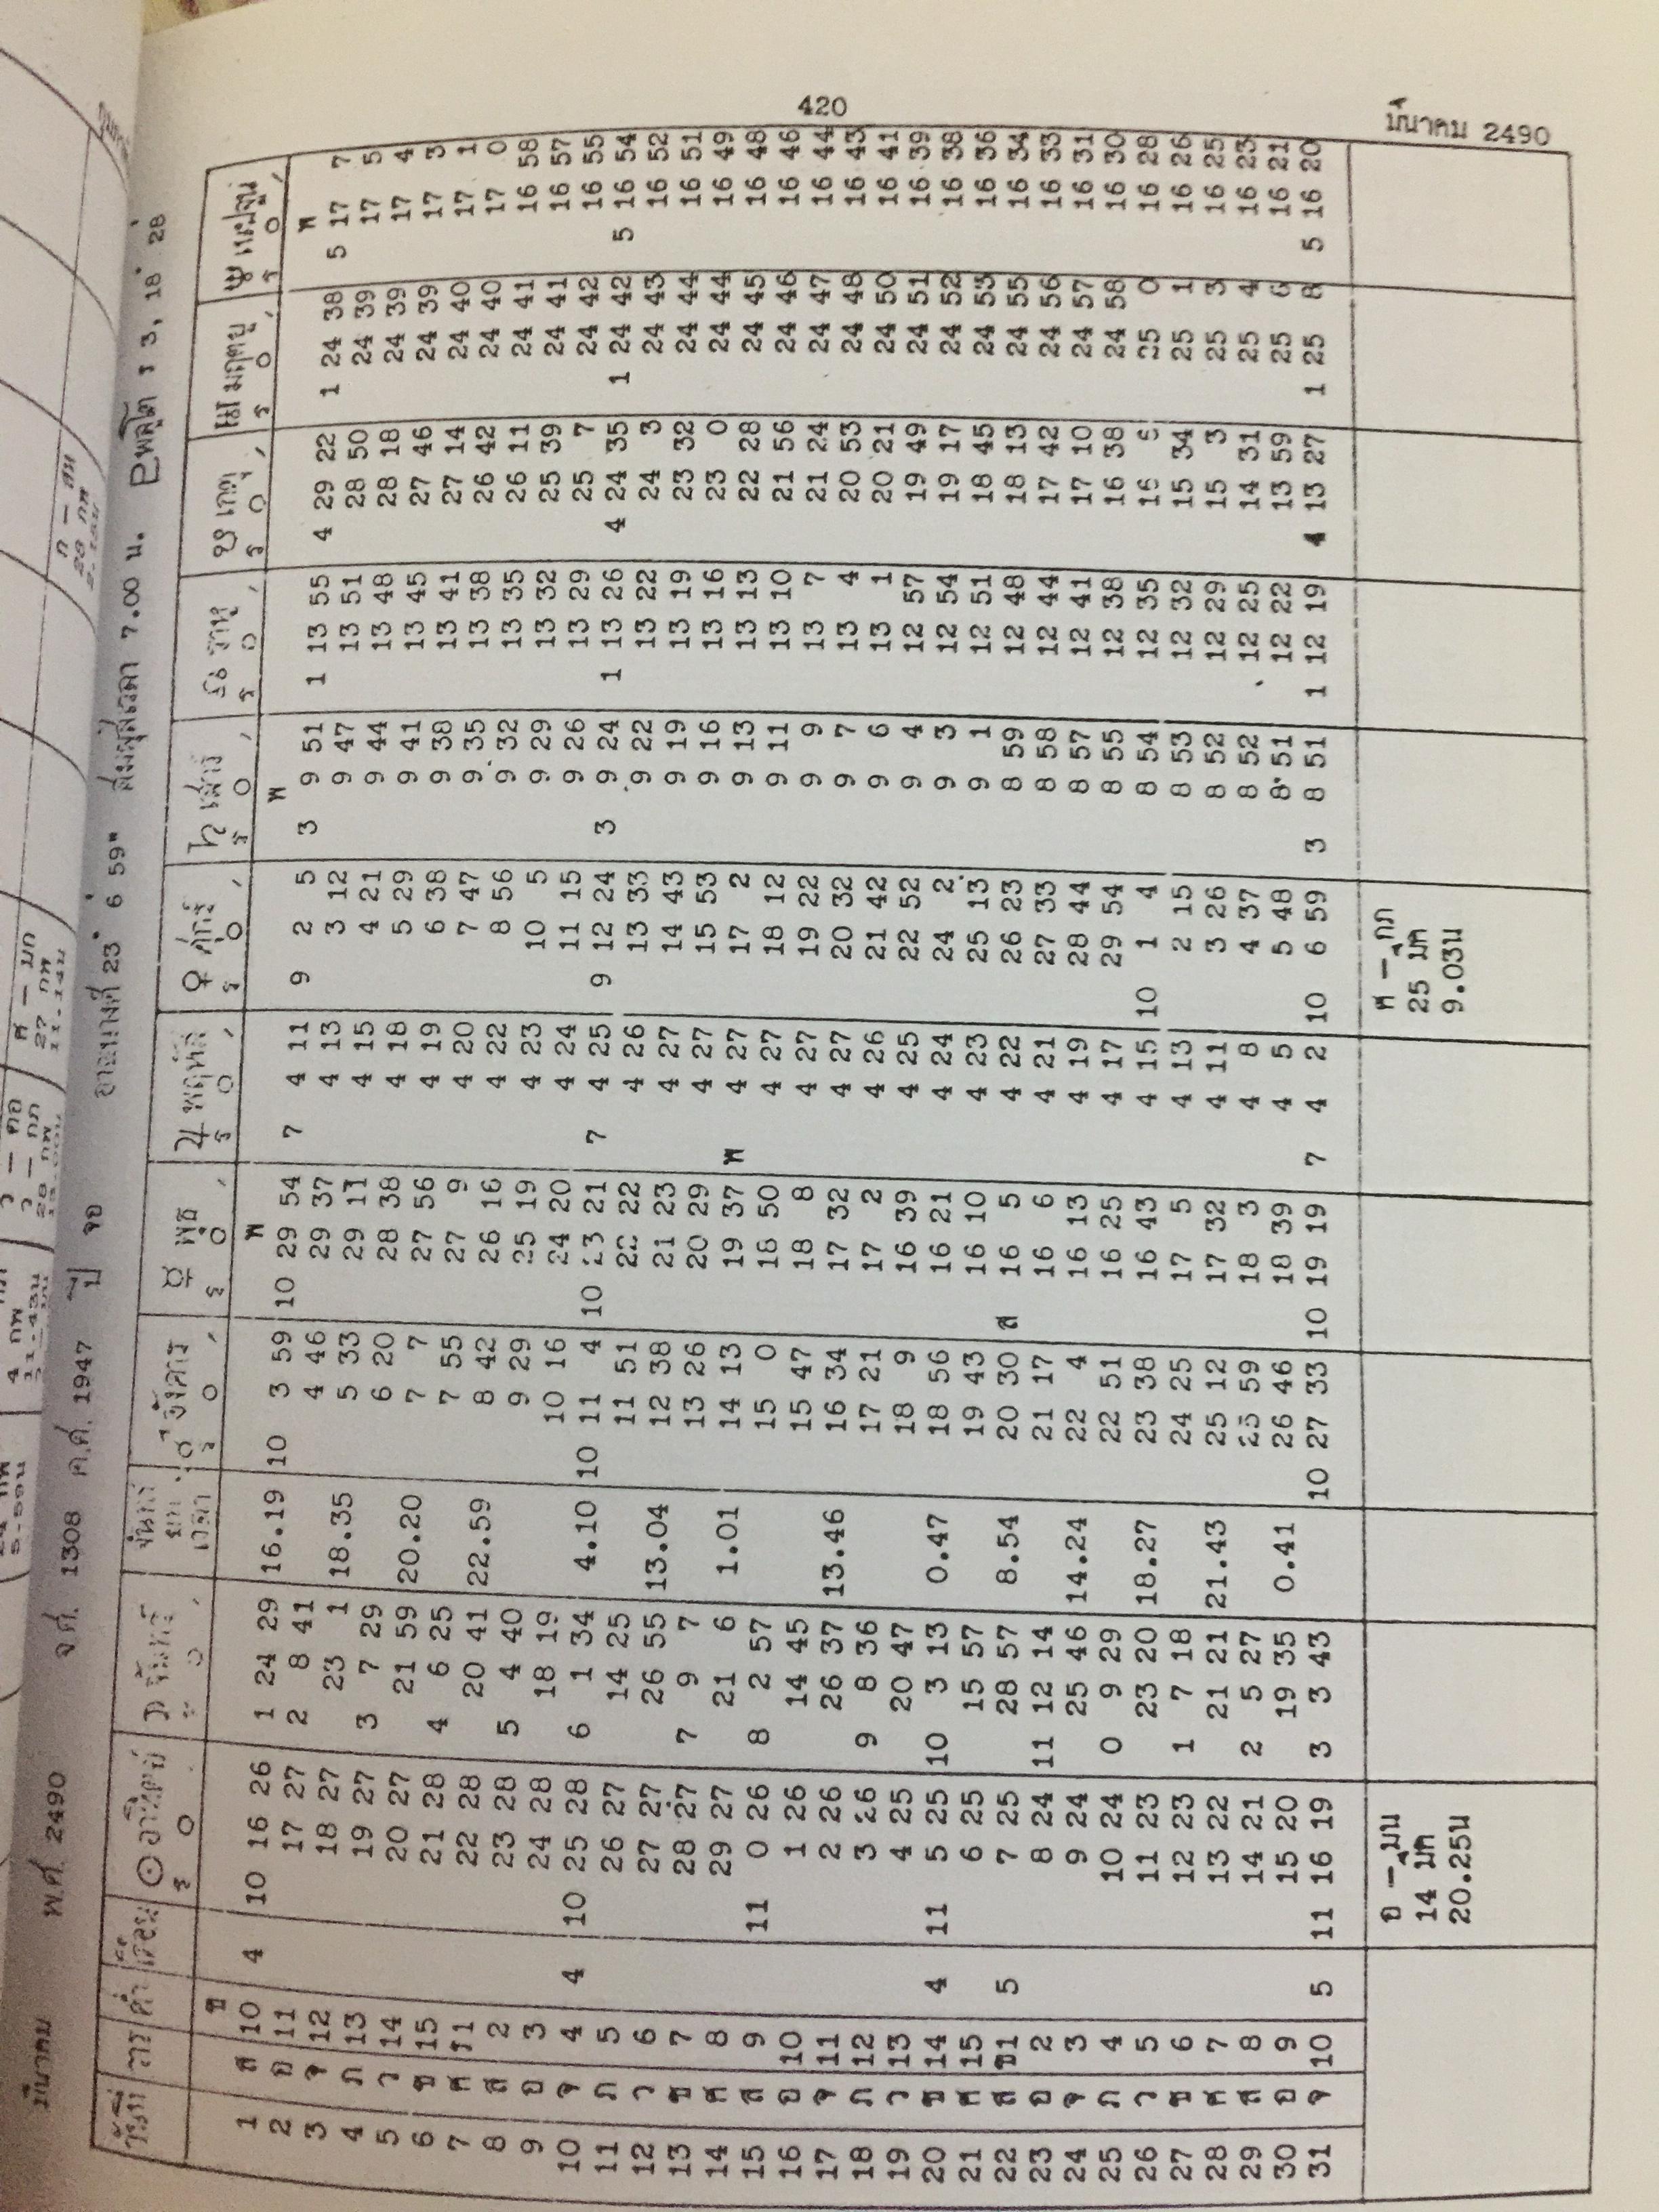 420
มีนาคม 2490
มีนาคม พ.ศ. 2490 จ.ศ. 1308 ค.ศ. 1947 ปี จอ อายนางศ์ 23° 6' 59" สมผุสเวลา 7.00 น. พลูโต ร 3, 18° 28'
วันที่ วาร ค่ำ เดือน อาทิตย์ จันทร์ จันทร์ ยก เวลา อังคาร พุธ พฤหัส ศุกร์ เสาร์ ราหู เกตุ มฤตยู เนปจูน
ร ° ' ร ° ' ร ° ' ร ° ' ร ° ' ร ° ' ร ° ' ร ° ' ร ° ' ร ° ' ร ° '
ข พ พ พ
1 ส 10 4 10 16 26 1 24 29 16.19 10 3 59 10 29 54 7 4 11 9 2 5 3 9 51 1 13 55 4 29 22 1 24 38 5 17 7
2 อ 11 17 27 2 8 41 4 46 29 37 4 13 3 12 9 47 13 51 28 50 24 39 17 5
3 จ 12 18 27 23 1 18.35 5 33 29 11 4 15 4 21 9 44 13 48 28 18 24 39 17 4
4 ภ 13 19 27 3 7 29 6 20 28 38 4 18 5 29 9 41 13 45 27 46 24 39 17 3
5 ว 14 20 27 21 59 20.20 7 7 27 56 4 19 6 38 9 38 13 41 27 14 24 40 17 1
6 ช 15 21 28 4 6 25 7 55 27 9 4 20 7 47 9 35 13 38 26 42 24 40 17 0
7 ศ ร1 22 28 20 41 22.59 8 42 26 16 4 22 8 56 9 32 13 35 26 11 24 41 16 58
8 ส 2 23 28 5 4 40 9 29 25 19 4 23 10 5 9 29 13 32 25 39 24 41 16 57
9 อ 3 24 28 18 19 10 16 24 20 4 24 11 15 9 26 13 29 25 7 24 42 16 55
10 จ 4 4 10 25 28 6 1 34 4.10 10 11 4 10 23 21 7 4 25 9 12 24 3 9 24 1 13 26 4 24 35 1 24 42 5 16 54
11 ภ 5 26 27 14 25 11 51 22 22 4 26 13 33 9 22 13 22 24 3 24 43 16 52
12 ว 6 27 27 26 55 13.04 12 38 21 23 4 27 14 43 9 19 13 19 23 32 24 44 16 51
13 ช 7 28 27 7 9 7 13 26 20 29 4 27 15 53 9 16 13 16 23 0 24 44 16 49
14 ศ 8 29 27 21 6 1.01 14 13 19 37 พ 4 27 17 2 9 13 13 13 22 28 24 45 16 48
15 ส 9 11 0 26 8 2 57 15 0 18 50 4 27 18 12 9 11 13 10 21 56 24 46 16 46
16 อ 10 1 26 14 45 15 47 18 8 4 27 19 22 9 9 13 7 21 24 24 47 16 44
17 จ 11 2 26 26 37 13.46 16 34 17 32 4 27 20 32 9 7 13 4 20 53 24 48 16 43
18 ภ 12 3 26 9 8 36 17 21 17 2 4 26 21 42 9 6 13 1 20 21 24 50 16 41
19 ว 13 4 25 20 47 18 9 16 39 4 25 22 52 9 4 12 57 19 49 24 51 16 39
20 ช 14 4 11 5 25 10 3 13 0.47 18 56 16 21 4 24 24 2 9 3 12 54 19 17 24 52 16 38
21 ศ 15 6 25 15 57 19 43 16 10 4 23 25 13 9 1 12 51 18 45 24 53 16 36
22 ส ข1 5 7 25 28 57 8.54 20 30 ส 16 5 4 22 26 23 8 59 12 48 18 13 24 55 16 34
23 อ 2 8 24 11 12 14 21 17 16 6 4 21 27 33 8 58 12 44 17 42 24 56 16 33
24 จ 3 9 24 25 46 14.24 22 4 16 13 4 19 28 44 8 57 12 41 17 10 24 57 16 31
25 ภ 4 10 24 0 9 29 22 51 16 25 4 17 29 54 8 55 12 38 16 38 24 58 16 30
26 ว 5 11 23 23 20 18.27 23 38 16 43 4 15 10 1 4 8 54 12 35 25 0 16 28
27 ช 6 12 23 1 7 18 24 25 17 5 4 13 2 15 8 53 12 32 15 34 25 1 16 26
28 ศ 7 13 22 21 21 21.43 25 12 17 32 4 11 3 26 8 52 12 29 15 3 25 3 16 25
29 ส 8 14 21 2 5 27 25 59 18 3 4 8 4 37 8 52 12 25 14 31 25 4 16 23
30 อ 9 15 20 19 35 0.41 26 46 18 39 4 5 5 48 8 51 12 22 13 59 25 6 16 21
31 จ 10 5 11 16 19 3 3 43 10 27 33 10 19 19 7 4 2 10 6 59 3 8 51 1 12 19 4 13 27 1 25 8 5 16 20
อ – มีน
14 มีค
20.25น
ศ – กุภ
25 มีค
9.03น